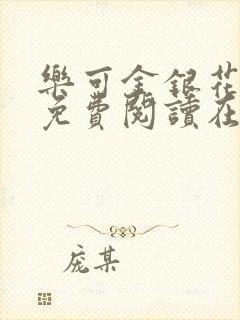 樂可金銀花
免費閱讀在
庞某